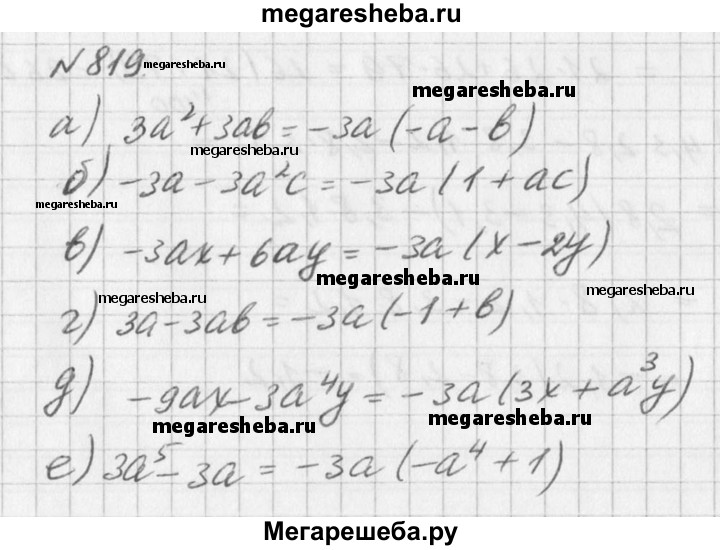 megaresheba.ru
№819. megaresheba.ru
а) 3a²+3ab=-3a(-a-b) megaresheba.ru
megaresheba.ru
б) -3a-3a²c=-3a(1+ac)
megaresheba.ru
в) -3ax+6ay=-3a(x-2y)
megaresheba.ru
megaresheba.ru
г) 3a-3ab=-3a(-1+b)
megaresheba.ru
д) -9ax-3a⁴y=-3a(3x+a³y)
megaresheba.ru megaresheba.ru
е) 3a⁵-3a=-3a(-a⁴+1)
Мегарешеба.ру